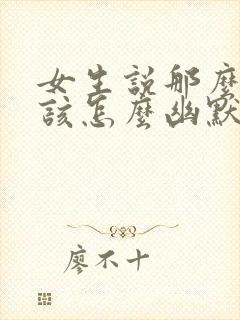 女生説那麼
該怎麼幽默
廖不十